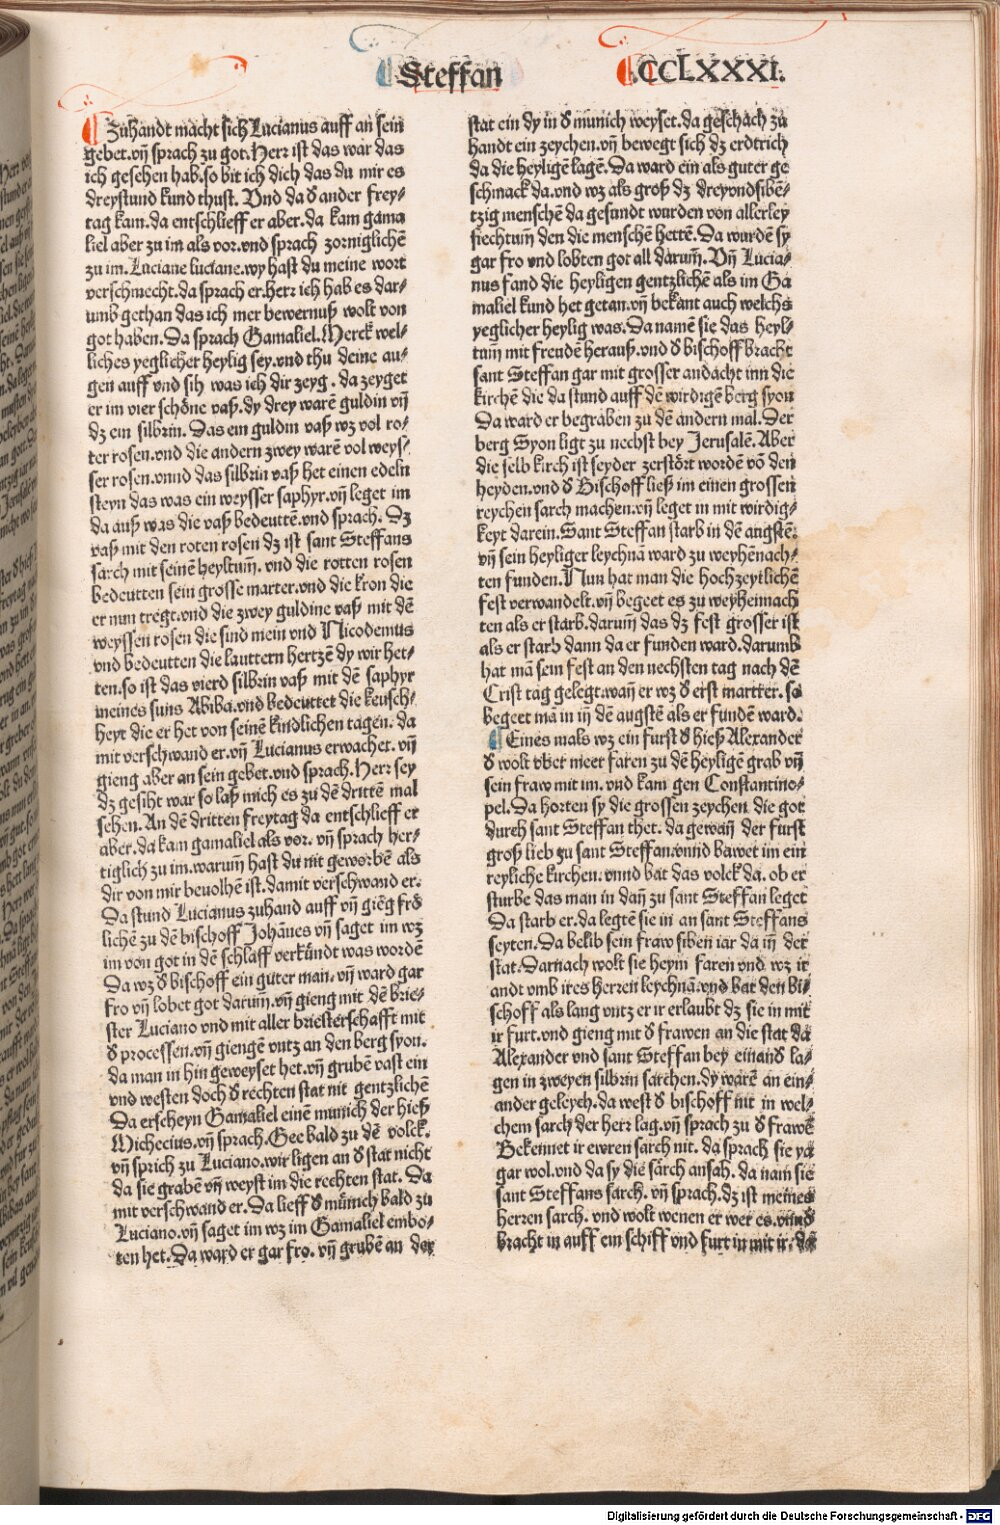 Steffan
CCLXXXI.
Zuhandt macht sich Lucianus auff an sein
gebet.vn̄ sprach zu got.Herr ist das war das
ich gesehen hab.so bit ich dich das du mir es
dreystund kund thust. Vnd da d̕ ander frey-
tag kam.da entschlieff er aber.da kam gama
liel aber zu im als vor.vnd sprach zorniglichē
zu im.Luciane luciane.wy hast du meine wort
verschmecht.da sprach er.herr ich hab es dar-
umb gethan das ich mer bewernuß wolt von
got haben.Da sprach Gamaliel.Merck wel-
liches yeglicher heylig sey.vnd thu deine au-
gen auff vnd sih was ich dir zeyg.da zeyget
er im vier schöne vaß.dy drey warē guldin vn̄
dz ein silbrin. Das ein guldin vaß wz vol ro-
ter rosen.vnd die andern zwey warē vol weys-
ser rosen.vnnd das silbrin vaß het einen edeln
steyn das was ein weysser saphyr.vn̄ leget im
da auß was die vaß bedeuttē.vnd sprach. Dz
vaß mit den roten rosen dz ist sant Steffans
sarch mit seinē heyltum̄. vnd die rotten rosen
bedeutten sein grosse marter.vnd die kron die
er nun tregt.vnd die zwey guldine vaß mit dē
weyssen rosen die sind mein vnd Nicodemus
vnd bedeutten die lauttern hertzē dy wir het-
ten.so ist das vierd silbrin vaß mit dē saphyr
meines suns Abiba.vnd bedeuttet die keusch-
heyt die er het von seinē kindlichen tagen. da
mit verschwand er.vn̄ Lucianus erwachet. vn̄
gieng aber an sein gebet.vnd sprach.Herr sey
dz gesiht war so laß mich es zu dē drittē mal
sehen. An dē dritten freytag da entschlieff er
aber.da kam gamaliel als vor. vn̄ sprach her-
tiglich zu im.warum̄ hast du nit geworbē als
dir von mir bevolhē ist.damit verschwand er.
Da stund Lucianus zuhand auff vn̄ giēg frö
lichē zu dē bischoff Johānes vn̄ saget im wz
im von got in dē schlaff verkündt was wordē
Da wz d̕ bischoff ein guter man. vn̄ ward gar
fro vn̄ lobet got darum̄.vn̄ gieng mit dē brie-
ster Luciano vnd mit aller briesterschafft mit
d̕ processen.vn̄ giengē vntz an den berg syon.
da man in hin geweyset het.vn̄ grubē vast ein
vnd westen doch d̕ rechten stat nit gentzlichē
Da erscheyn Gamaliel einē munich der hieß
Michecius.vn̄ sprach.Gee bald zu dē volck.
vn̄ sprich zu Luciano.wir ligen an d̕ stat nicht
da sie grabē vn̄ weyst im die rechten stat. Da
mit verschwand er.Da lieff d̕ münich bald zu
Luciano.vn̄ saget im wz im Gamaliel embo-
ten het.Da ward er gar fro. vn̄ grubē an der
stat ein dy in d̕ munich weyset.da geschach zu
handt ein zeychen.vn̄ bewegt sich dz erdtrich
da die heyligē lagē.Da ward ein als guter ge
schmack da.vnd wz als groß dz dreyvndsibē-
tzig menschē da gesundt wurden von allerley
siechtum̄ den die menschē hettē.Da wurdē sy
gar fro vnd lobten got all darum̄. Vn̄ Lucia-
nus fand die heyligen gentzlichē als im Ga
maliel kund het getan.vn̄ bekānt auch welchs
yeglicher heylig was.Da namē sie das heyl-
tum̄ mit freudē herauß.vnd d̕ bischoff bracht
sant Steffan gar mit grosser andacht inn die
kirchē die da stund auff dē wirdigē berg syon
Da ward er begraben zu dē andern mal. Der
berg Syon ligt zu nechst bey Jerusalē. Aber
die selb kirch ist seyder zerstört wordē vō den
heyden.vnd d̕ Bischoff ließ im einen grossen
reychen sarch machen.vn̄ leget in mit wirdig-
keyt darein.Sant Steffan starb in dē augstē.
vn̄ sein heyliger leychnā ward zu weyhēnach-
ten funden.Nun hat man die hochzeytlichē
fest verwandelt.vn̄ begeet es zu weyhennach
ten als er starb. darum̄ das dz fest grosser ist
als er starb dann da er funden ward.darumb
hat mā sein fest an den nechsten tag nach dē
Crist tag gelegt.wan̄ er wz d̕ erst martrer. so
begeet mā in in̄ dē augstē als er fundē ward.
Eines mals wz ein furst d̕ hieß Alexander
d̕ wolt vber meer faren zu dē heyligē grab vn̄
sein fraw mit im. vnd kam gen Constantino-
pel.Da horten sy die grossen zeychen die got
durch sant Steffan thet. da gewan̄ der furst
groß lieb zu sant Steffan.vnnd bawet im ein
reyliche kirchen. vnnd bat das volck da. ob er
sturbe das man in dan̄ zu sant Steffan leget
Da starb er.da legtē sie in an sant Steffans
seyten.Da belib sein fraw siben iar da in̄ der
stat.Darnach wolt sie heym faren vnd wz ir
andt vmb ires herren leychnā.vnd bat den bi-
schoff als lang vntz er ir erlaubt dz sie in mit
ir furt.vnd gieng mit d̕ frawen an die stat da
Alexander vnd sant Steffan bey einand̕ la-
gen in zweyen silbrin särchen.dy warē an ein-
ander geleych.da west d̕ bischoff nit in wel-
chem sarck der herr lag.vn̄ sprach zu d̕ frawē
Bekennet ir ewren sarch nit. da sprach sie ya
gar wol.vnd da sy die särch ansah. da nam sie
sant Steffans sarch. vn̄ sprach.dz ist meines
herren sarch. vnd wolt wenen er wer es.vnnd
bracht in auff ein schiff vnd furt in mit ir. da
Digitalisierung gefördert durch die Deutsche Forschungsgemeinschaft - DFG